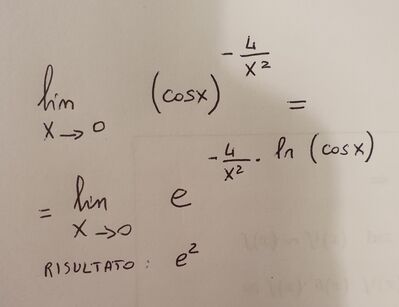 lim x→0 (cosx)^(-4/x²) =
= lim x→0 e^(-4/x² · ln (cosx))
RISULTATO: e²